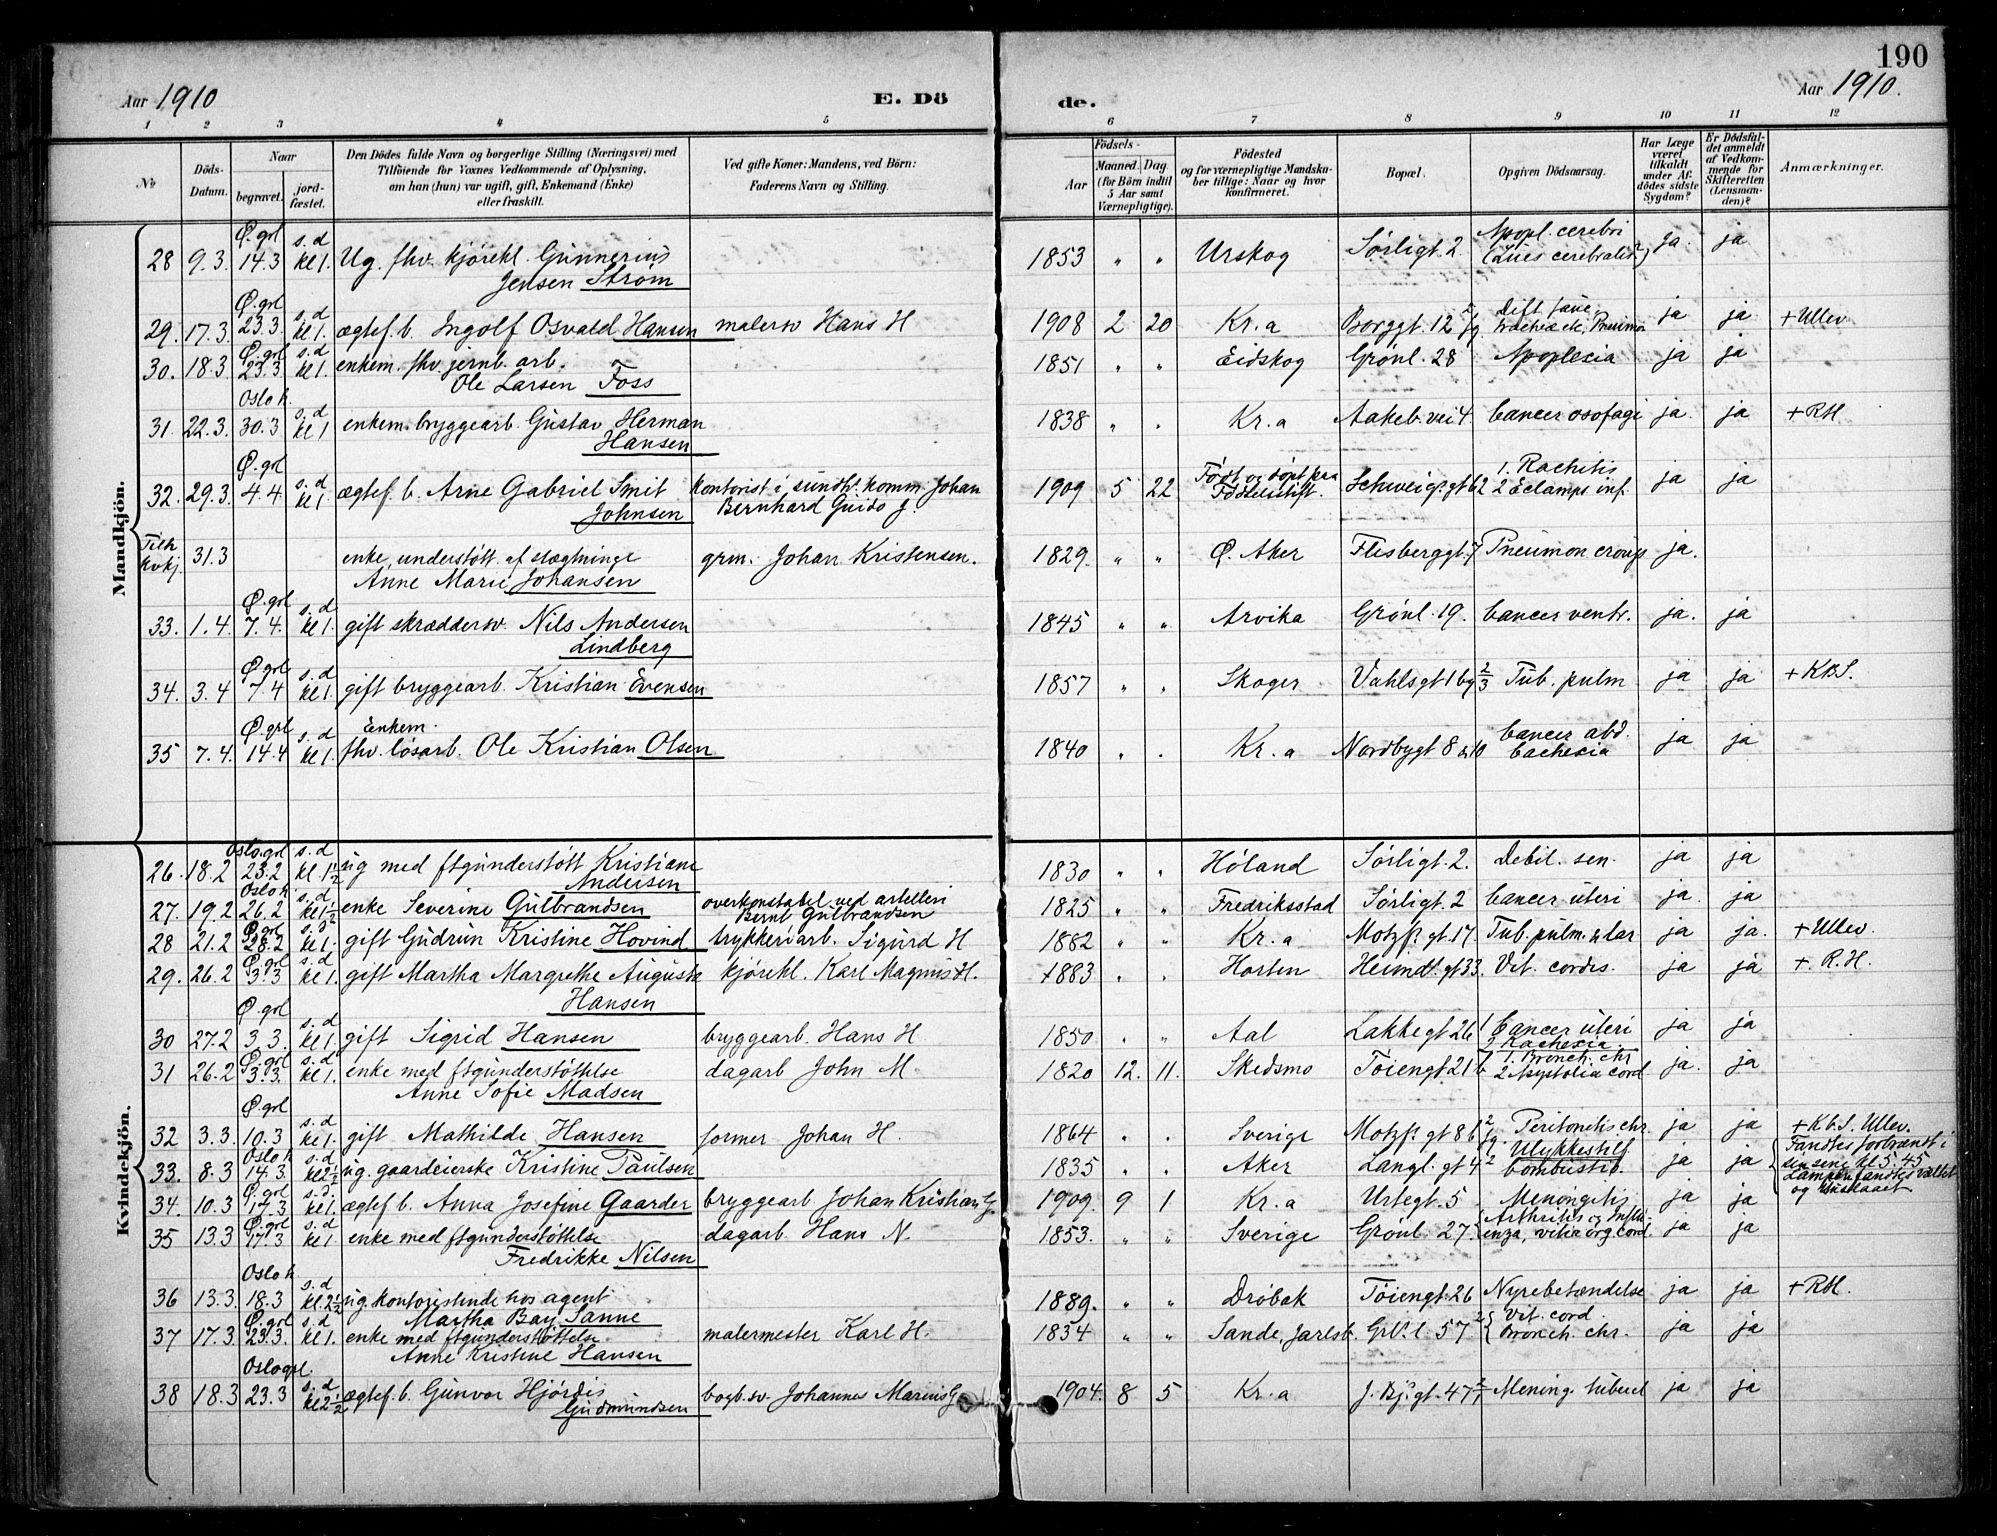 190
Aar 1910
E. Dö
de.
Aar 1910.
1 2 3 4 5 6 7 8 9 10 11 12
No
Döds-Datum.
Naar
begravet.
jord-fæstet.
Den Dödes fulde Navn og borgerlige Stilling (Næringsvei) med
Tilföiende for Voxnes Vedkommende af Oplysning,
om han (hun) var ugift, gift, Enkemand (Enke)
eller fraskilt.
Ved gifte Koner: Mandens, ved Börn:
Faderens Navn og Stilling.
Födsels-
Aar
Maaned. Dag
(for Börn indtil
5 Aar samt
Værnepligtige).
Födested
og for værnepligtige Mandska-
ber tillige: Naar og hvor
konfirmeret.
Bopæl.
Opgiven Dödsaarsag.
Har Læge
været
tilkaldt
under Af-
dödes sidste
Sygdom?
Er Dödsfal-
det anmeldt
af Vedkom-
mende for
Skifteretten
(Lensman-
den)?
Anmærkninger.
Mandkjön.
Ø. grl s. d Apopl. cerebri
28 9.3. 14.3 kl 1. Ug. fhv. kjørekl. Gunnerius 1853 " " Urskog Sørligt. 2. (Lues cerebralis?) Ja. ja
Jensen Strøm
Ø. grl s. d Dift. fauc.
29. 17.3. 23.3. kl 1. ægtef. b. Ingolf Osvald Hansen malersv Hans H 1908 2 20 Kr.a Borggt. 12 ja ja + Ullev.
Ø. grl s. d
30. 18.3 23.3 kl 1. enkem. fhv. jernb. arb. 1851 " " Eidskog Grønl. 28 Apoplexia ja ja
Ole Larsen Foss
Oslo k. s. d
31. 22.3. 30.3 kl 1 enkem. bryggearb. Gustav Herman 1838 " . Kr.a Aakeb.vei 4. Cancer osofagi ja. ja + RH.
Hansen
Ø. grl s. d Født og døpt paa 1. Rachitis
32. 29.3. 4.4 kl 1. ægtef. b. Arne Gabriel Smit kontorist i sundh. komm. Johan 1909 5 22 Fødselsstift. Schweigs. gt 62 2 Eclamps inf. ja ja
Johnsen Bernhard Guido J.
Tilh
kvkj. 31.3 enke, understøtt. af slægtninge grm. Johan Kristensen. 1829. " " Ø. Aker Flisberggt. 7 Pneumon croups ja.
Anne Marie Johansen
Ø. grl s. d
33. 1.4. 7.4. kl 1. gift skræddersv. Nils Andersen 1845 " " Arvika Grønl. 19. Cancer ventr. ja. ja
Lindberg
Ø. grl s. d
34. 3.4 7.4 kl 1. gift bryggearb. Kristian Evensen 1857 " " Skoger Vahlsgt 1 bg 2/3 Tub. pulm ja ja + KBS.
Ø. grl s. d Enkem. Cancer abd.
35 7.4. 14.4 kl 1. fhv. løsarb. Ole Kristian Olsen 1840 " . Kr.a Nordbygt 8 & 10 Cachexia ja ja
Kvindekjön.
Oslo. grl s. d
26. 18.2 23.2 kl. 1½ ug med ftgunderstøtt Kristiane 1830 " " Høland Sørligt. 2. Debil. sen. ja ja
Andersen
Oslo k. s. d
27. 19.2 26.2 kl 1½ enke Severine Gulbrandsen overkonstabel ved artelleri 1825 " " Fredriksstad Sørligt. 2 Cancer uteri ja. ja
Bernt Gulbrandsen
Ø. grl s. d
28 21.2 28.2 kl 1. gift Gudrun Kristine Hovind trykkeriarb. Sigurd H 1882 " " Kr.a Motzf. gt 17. Tub. pulm. & lar ja ja. + Ullev.
Ø. grl s. d
29. 26.2 3.3 kl 1. gift Martha Margrethe Auguste kjørekl. Karl Magnus H. 1883 . . Horten Heimd. gt 33. Vit. cordis. ja ja +. R.H.
Hansen
Ø. grl s. d
30 27.2 3.3. kl 1. gift Sigrid Hansen bryggearb. Hans H 1850 . " Aal Lakkegt 26 1 Cancer uteri ja ja
2 Kachexia.
Ø. grl s. d 1. Bronch. chr
31 26.2 3.3. kl 1. enke med ftgunderstøttelse dagarb John M. 1820 12. 11. Skedsmo Tøiengt. 21 b 2 Asystolia cord ja. ja
Anne Sofie Madsen
Ø. grl s. d
32 3.3. 10.3 kl 1. gift Mathilde Hansen former Johan H. 1864 " . Sverige Motzf. gt 8 b Peritonitis chr. ja ja + KbS. Ullev.
Oslo k s. d Ulykkestilf
33. 8.3 14.3 kl 2½ ug. gaardeierske Kristine Paulsen 1835 " " Aker Langl. gt 4 combustio. ja ja Fandtes forbrændt i
sin seng kl 5.45
Lampen fandtes væltet
og
Ø. grl s. d.
34. 10.3 17.3 kl 1. ægtef. b. Anna Josefine Gaarder bryggearb. Johan Kristian G. 1909. 9 1 Kr.a Urtegt. 5 Meningitis ja ja
Ø. grl s. d Arthritis og Influ-
35 13.3 17.3 kl 1 enke med ftgunderstøttelse dagarb. Hans N. 1853. " " Sverige Grønl. 27. enza, vitia org cord. ja ja
Fredrikke Nilsen
Oslo k s. d
36 13.3. 18.3 kl. 2½ ug. kontoristinde hos agent 1889. " " Drøbak Tøiengt. 26 Nyrebetændelse ja ja + RH.
Martha Bay Sanne
Ø. grl s. d Vit. cord
37 17.3. 23.3. kl 1. enke med ftgunderstøttelse. malermester Karl H. 1834 " " Sande, Jarlsb. Grl. 57 Bronch. chr. ja ja
Anne Kristine Hansen
Oslo grl. s. d
38 18.3 23.3 kl 2½ ægtef. b. Gunvor Hjørdis bogb. sv. Johannes Marius G 1904. 8 5 Kr.a J. Bj. gt. 47 Mening. tubercl ja ja
Gudmundsen